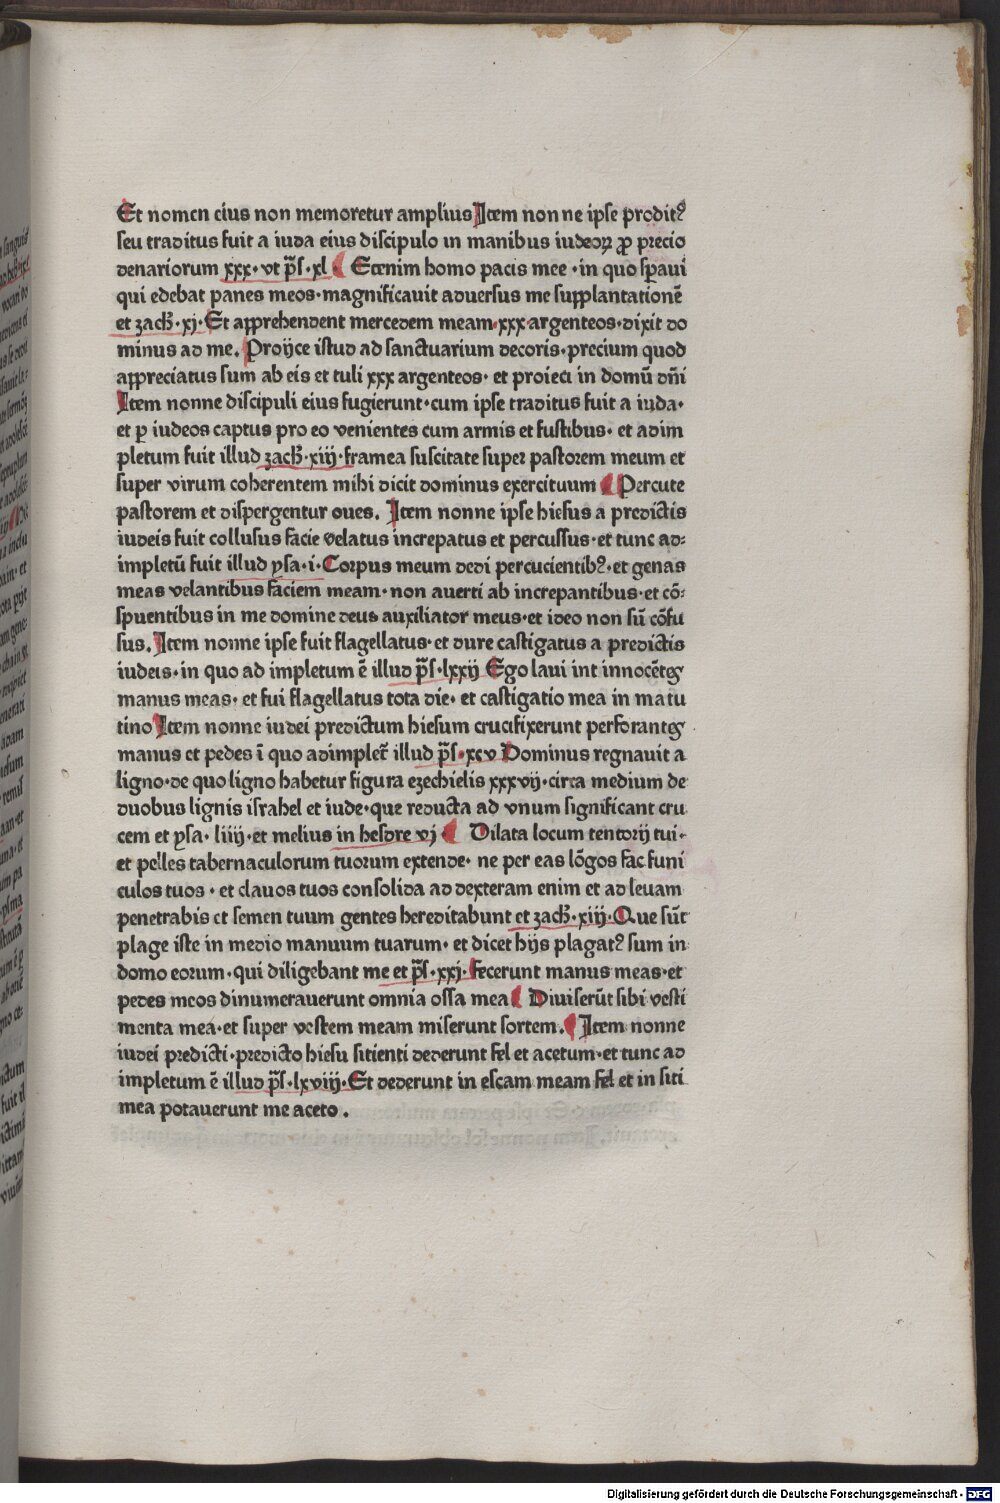 Et nomen eius non memoretur amplius Item non ne ipse prodit9
seu traditus fuit a iuda eius discipulo in manibus iudeoꝝ ꝓ precio
denariorum xxx· vt p̄s· xl Etenim homo pacis mee · in quo speraui
qui edebat panes meos· magnificauit aduersus me supplantationē
et zach· xj· Et apprehendent mercedem meam·xxx·argenteos·dixit do
minus ad me. Proijce istud ad sanctuarium decoris·precium quod
appreciatus sum ab eis et tuli xxx argenteos· et proieci in domū dn̄i
Item nonne discipuli eius fugierunt·cum ipse traditus fuit a iuda·
et ꝑ iudeos captus pro eo venientes cum armis et fustibus· et adim
pletum fuit illud zach·xiij·framea suscitate super pastorem meum et
super virum coherentem mihi dicit dominus exercituum Percute
pastorem et dispergentur oues. Item nonne ipse hiesus a predictis
iudeis fuit collusus facie velatus increpatus et percussus·et tunc ad⸗
impletū fuit illud ysa·i·Corpus meum dedi percucientib9·et genas
meas velantibus faciem meam·non auerti ab increpantibus·et cō⸗
spuentibus in me domine deus auxiliator meus·et ideo non sū cōfu
sus. Item nonne ipse fuit flagellatus·et dure castigatus a predictis
iudeis·in quo ad impletum ē illud p̄s·lxxij Ego laui int innocētes
manus meas· et fui flagellatus tota die· et castigatio mea in matu
tino Item nonne iudei predictum hiesum crucifixerunt perforantes
manus et pedes ī quo adimplet̄ illud p̄s·xcv Dominus regnauit a
ligno·de quo ligno habetur figura ezechielis xxxvij·circa medium de
duobus lignis israhel et iude·que reducta ad vnum significant cru
cem et ysa· liiij·et melius in hesdre vj Dilata locum tentorij tui·
et pelles tabernaculorum tuorum extende· ne per eas lōgos fac funi
culos tuos · et clauos tuos consolida ad dexteram enim et ad leuam
penetrabis et semen tuum gentes hereditabunt et zach·xiij·Que sūt
plage iste in medio manuum tuarum· et dicet hijs plagat9 sum in
domo eorum·qui diligebant me et p̄s·xxj·fecerunt manus meas·et
pedes meos dinumerauerunt omnia ossa mea Diuiserūt sibi vesti
menta mea·et super vestem meam miserunt sortem. Item nonne
iudei predicti·predicto hiesu sitienti dederunt fel et acetum·et tunc ad
impletum ē illud p̄s·lxviij·Et dederunt in escam meam fel et in siti
mea potauerunt me aceto .
Digitalisierung gefördert durch die Deutsche Forschungsgemeinschaft - DFG